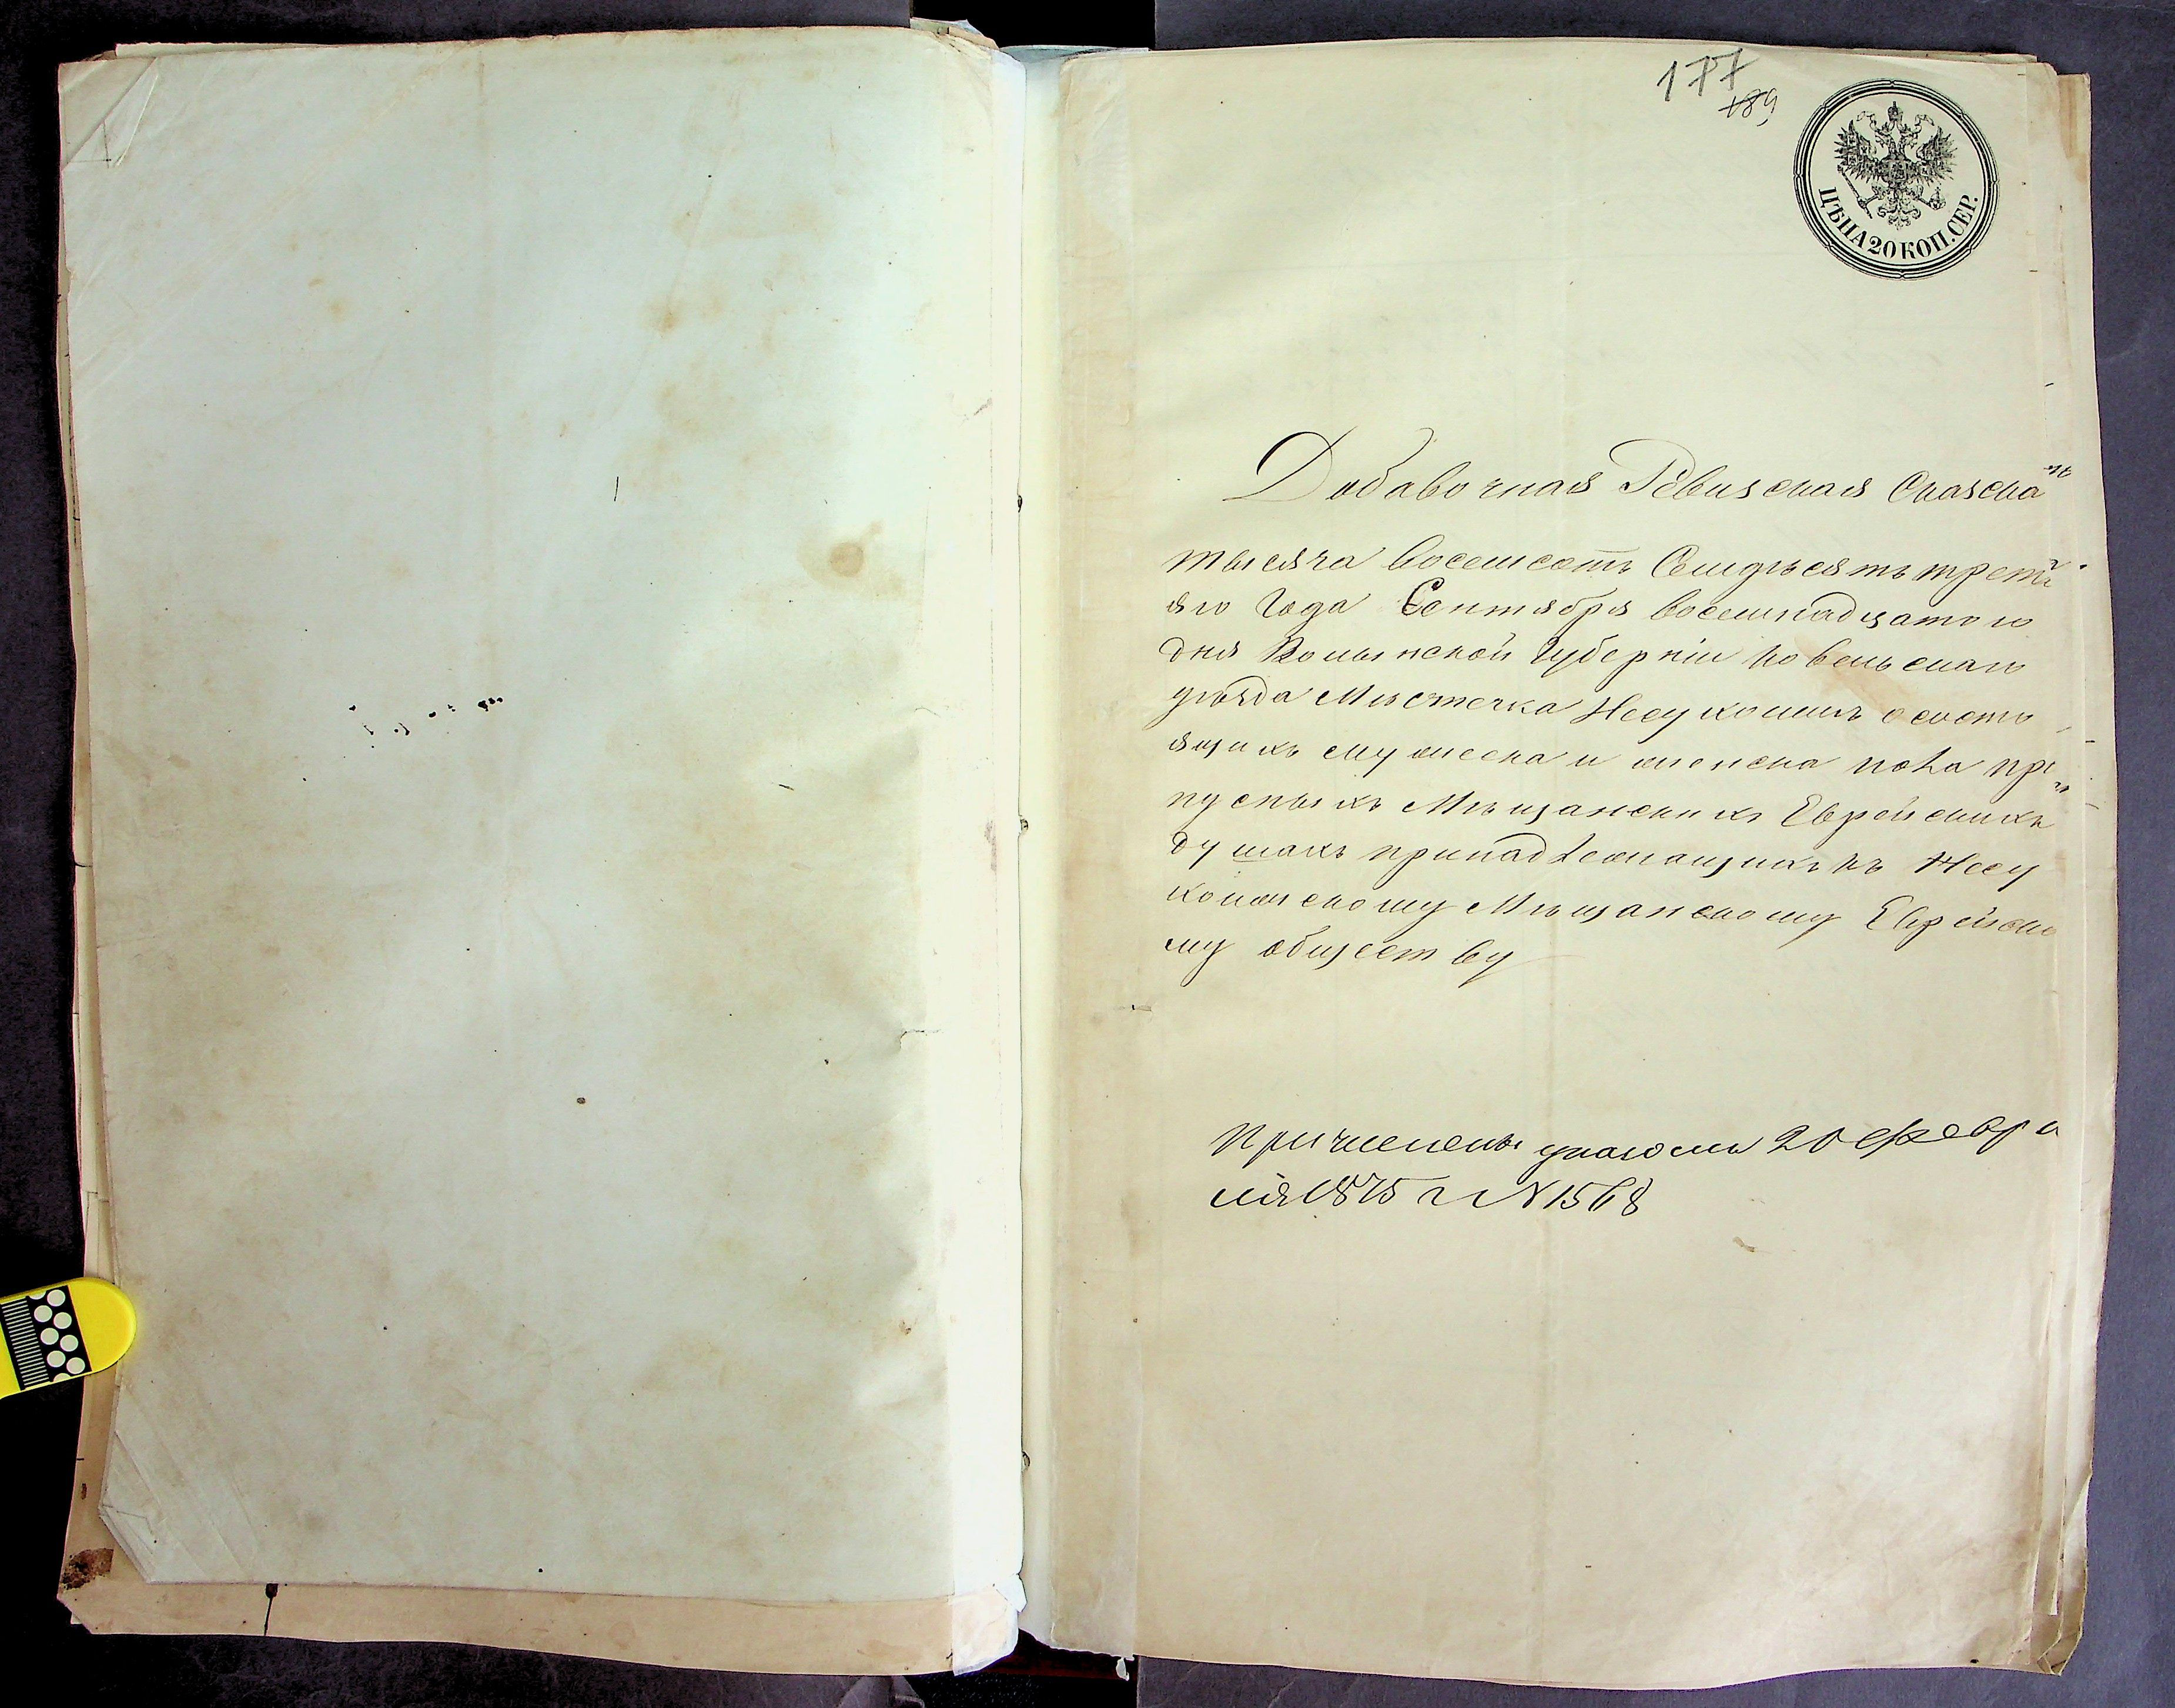 177
189
ЦѢНА 20 КОП. СЕР.
Добавочная Ревизская Сказка
тысяча восемсотъ Семдѣсятъ третi
яго Года Сентября восемнадцатого
дня Волынской Губернiи Ковельскаго
уѣзда Мѣстечка Несухоижъ о состо
ящихъ мужеска и женска пола про
пусныхъ Мѣщанскихъ Еврейскихъ
душахъ принадлежащихъ къ Несу
хоижскому Мѣщанскому Еврейско
му обществу
Причислены указомъ 20 Февра
ля 1875 г N 1568